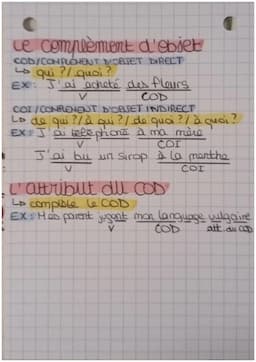 Le complément d'objet
COD/COMPLÉMENT D'OBJET DIRECT
↳ qui ?/quoi ?
EX : J'ai acheté des fleurs
V COD
COI/COMPLÉMENT D'OBJET INDIRECT
↳ de qui ?/à qui ?/de quoi ?/à quoi ?
EX : J'ai téléphoné à ma mère
V COI
J'ai bu un sirop à la menthe
V COI
L'attribut du COD
↳ complète le COD
EX : Mes parent jugent mon language vulgaire
V COD att. du COD